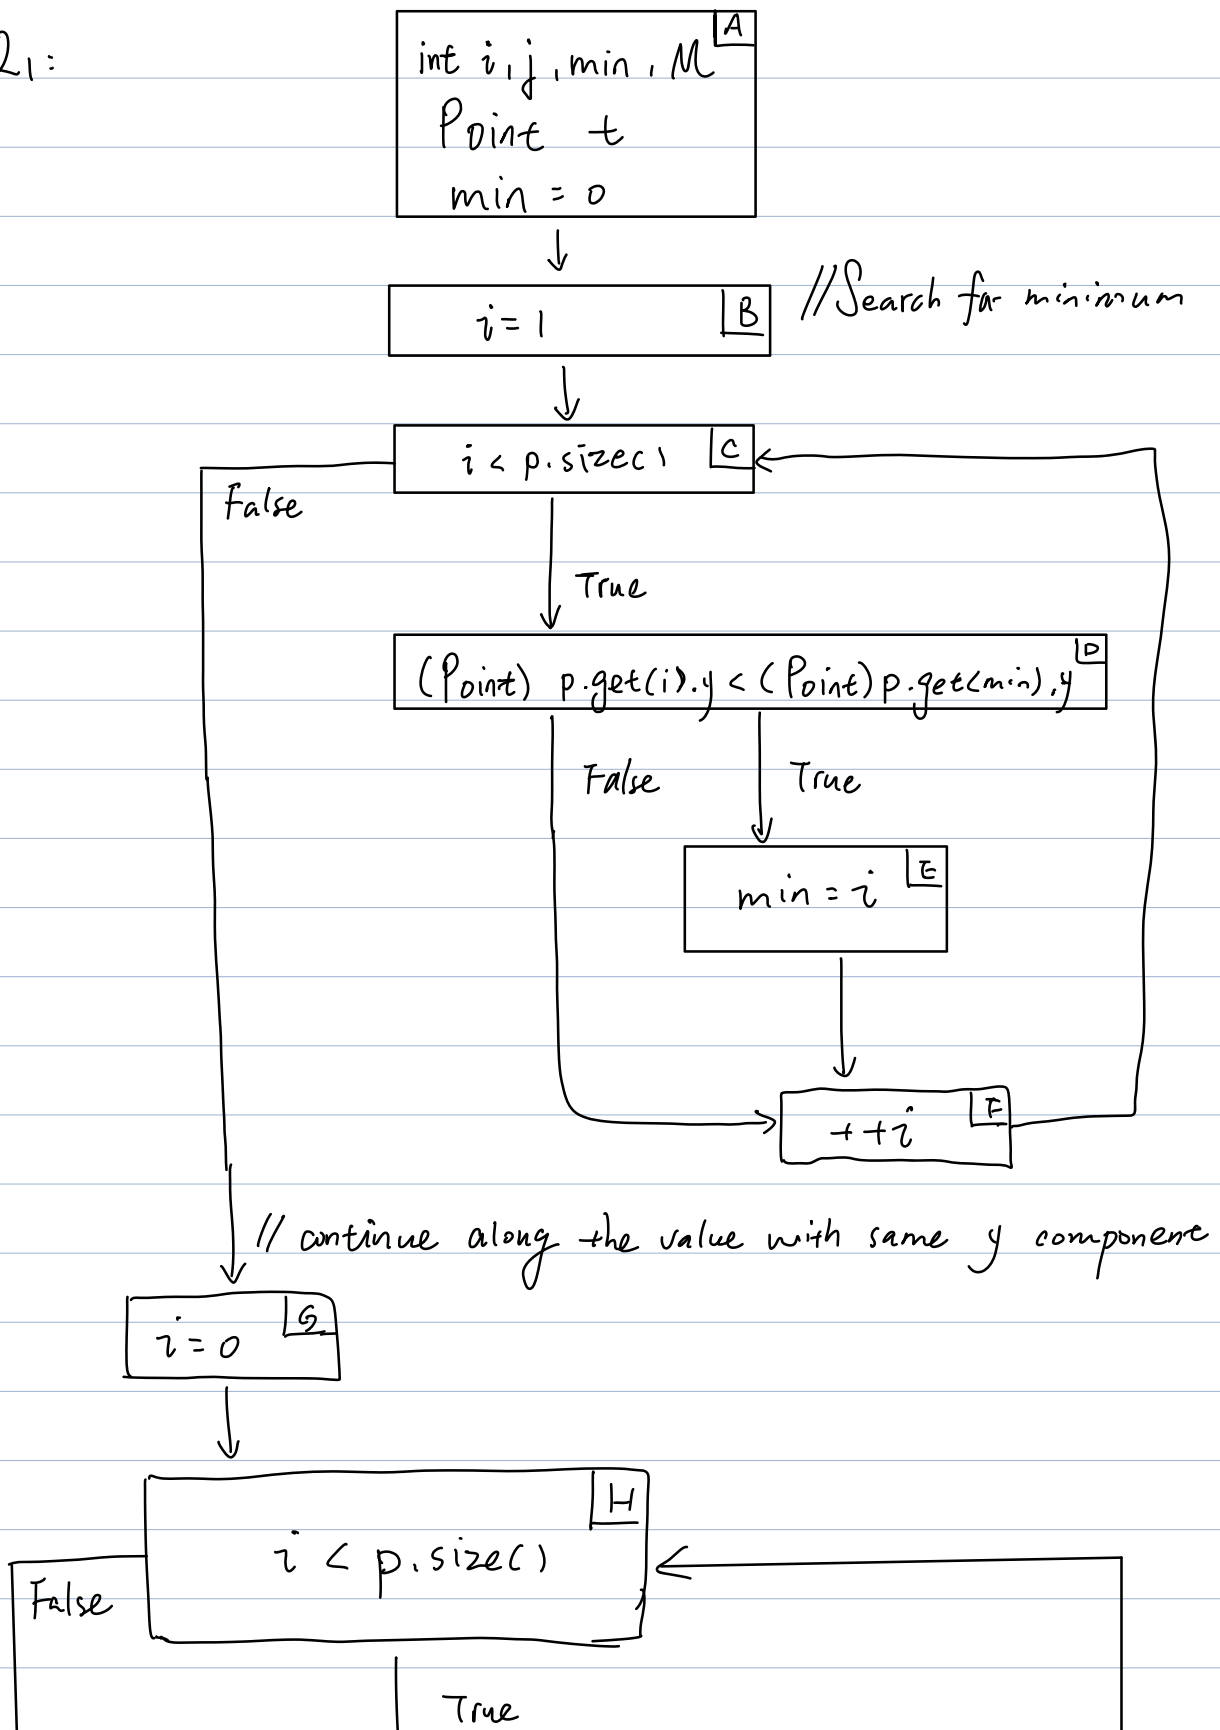 Q1:
A
int i, j, min, M
Point t
min = 0
B
i = 1
//Search for minimum
C
i < p.size()
False
True
D
(Point) p.get(i).y < (Point) p.get(min).y
False
True
E
min = i
F
++i
// continue along the value with same y component
G
i = 0
H
i < p.size()
False
True